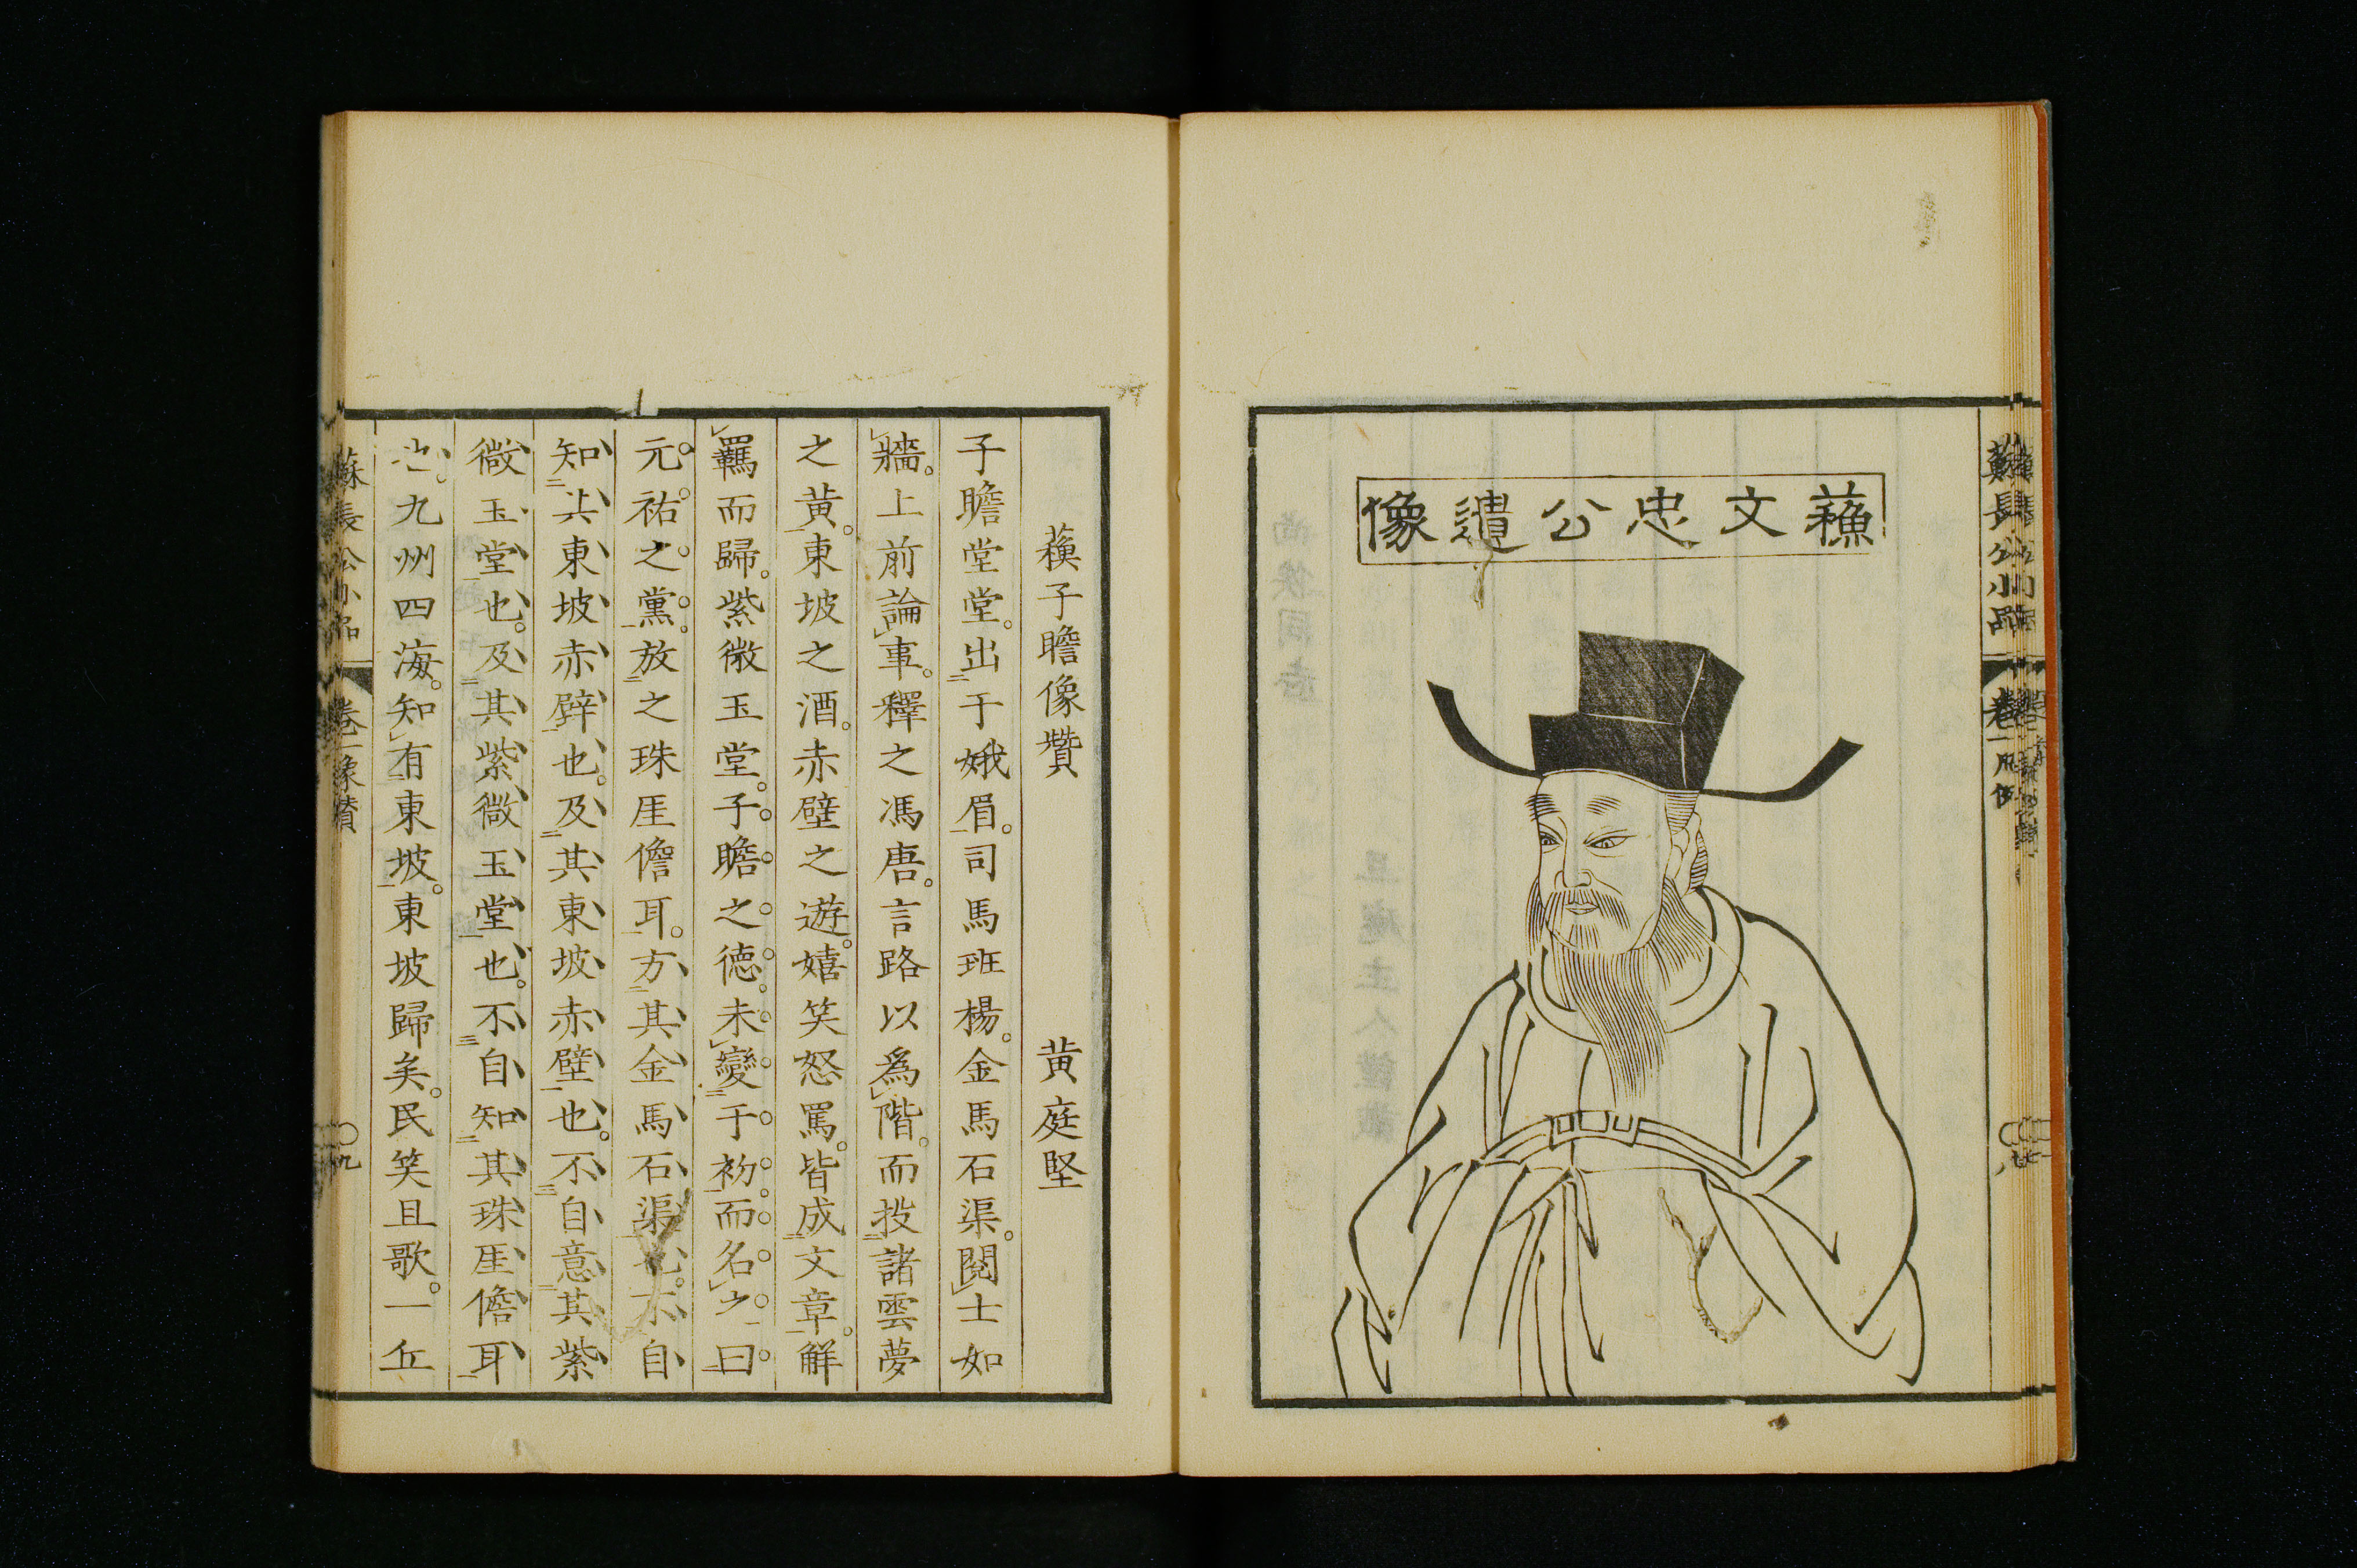 蘓文忠公遺像
蘓子瞻像贊 黄庭堅
子瞻堂堂。出于峨眉。司馬班楊。金馬石渠。閱士如
牆。上前論事。釋之馮唐。言路以爲階。而投諸雲夢
之黄。東坡之酒。赤壁之遊。嬉笑怒罵。皆成文章。解
羈而歸。紫微玉堂。子瞻之德。未變于初。而名之曰
元祐之黨。放之珠厓儋耳。方其金馬石渠也。不自
知其東坡赤壁也。及其東坡赤壁也。不自意其紫
微玉堂也。及其紫微玉堂也。不自知其珠厓儋耳
也。九州四海。知有東坡。東坡歸矣。民笑且歌。一丘
蘇長公小品 卷一 像贊 九